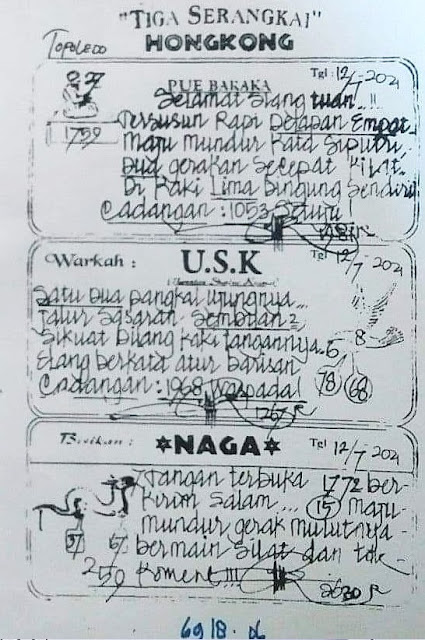 "TIGA SERANGKAI"
Topoledo
HONGKONG
Tgl : 12/7-2021
PUE BAKAKA
Selamat Siang tuan..!!
Tersusun Rapi Delapan Empat
1759
Maju mundur Kata Siputri,
Dua gerakan Secepat Kilat.
Di Kaki Lima Bingung Sendiri
Cadangan : 1053 Setuju
Warkah :
U.S.K
Tgl 12/7 2021
Satu Dua pangkal ujungnya...
Jalur Sasaran Sembilan 2,
Sikuat Bilang Kaki Tangannya. 6
8
Elang berkata atur barisan
78
68
Cadangan : 1968 Waspada!
1267
Bisikan :
NAGA
Tgl 12/7 2021
Tangan terbuka 1772 ber-
Kirim Salam... 15 Maju
mundur gerak mulutnya
67
bermain Silat dan tak
259 Koment!!!
2630
6918.